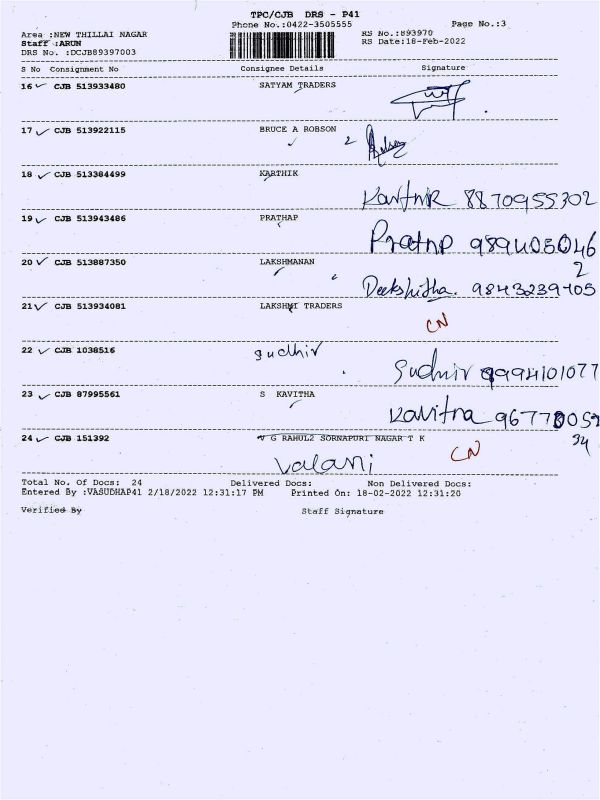 TPC/CJB DRS - P41
Phone No.:0422-3505555 Page No.:3
Area :NEW THILLAI NAGAR RS No.:893970
Staff :ARUN RS Date:18-Feb-2022
DRS No. :DCJB89397003
S No Consignment No Consignee Details Signature
16 CJB 513933480 SATYAM TRADERS
17 CJB 513922115 BRUCE A ROBSON
2
18 CJB 513384499 KARTHIK
Karthik 8870955302
19 CJB 513943486 PRATHAP
Prathp 989405046
2
20 CJB 513887350 LAKSHMANAN
Deekshitha. 9843239405
21 CJB 513934081 LAKSHMI TRADERS
CN
22 CJB 1038516 sudhir
Sudhir 9994101077
23 CJB 87995561 S KAVITHA
Kavitha
34
24 CJB 151392 V G RAHUL2 SORNAPURI NAGAR T K
CN
Valani
Total No. Of Docs: 24 Delivered Docs: Non Delivered Docs:
Entered By :VASUDHAP41 2/18/2022 12:31:17 PM Printed On: 18-02-2022 12:31:20
Verified By Staff Signature